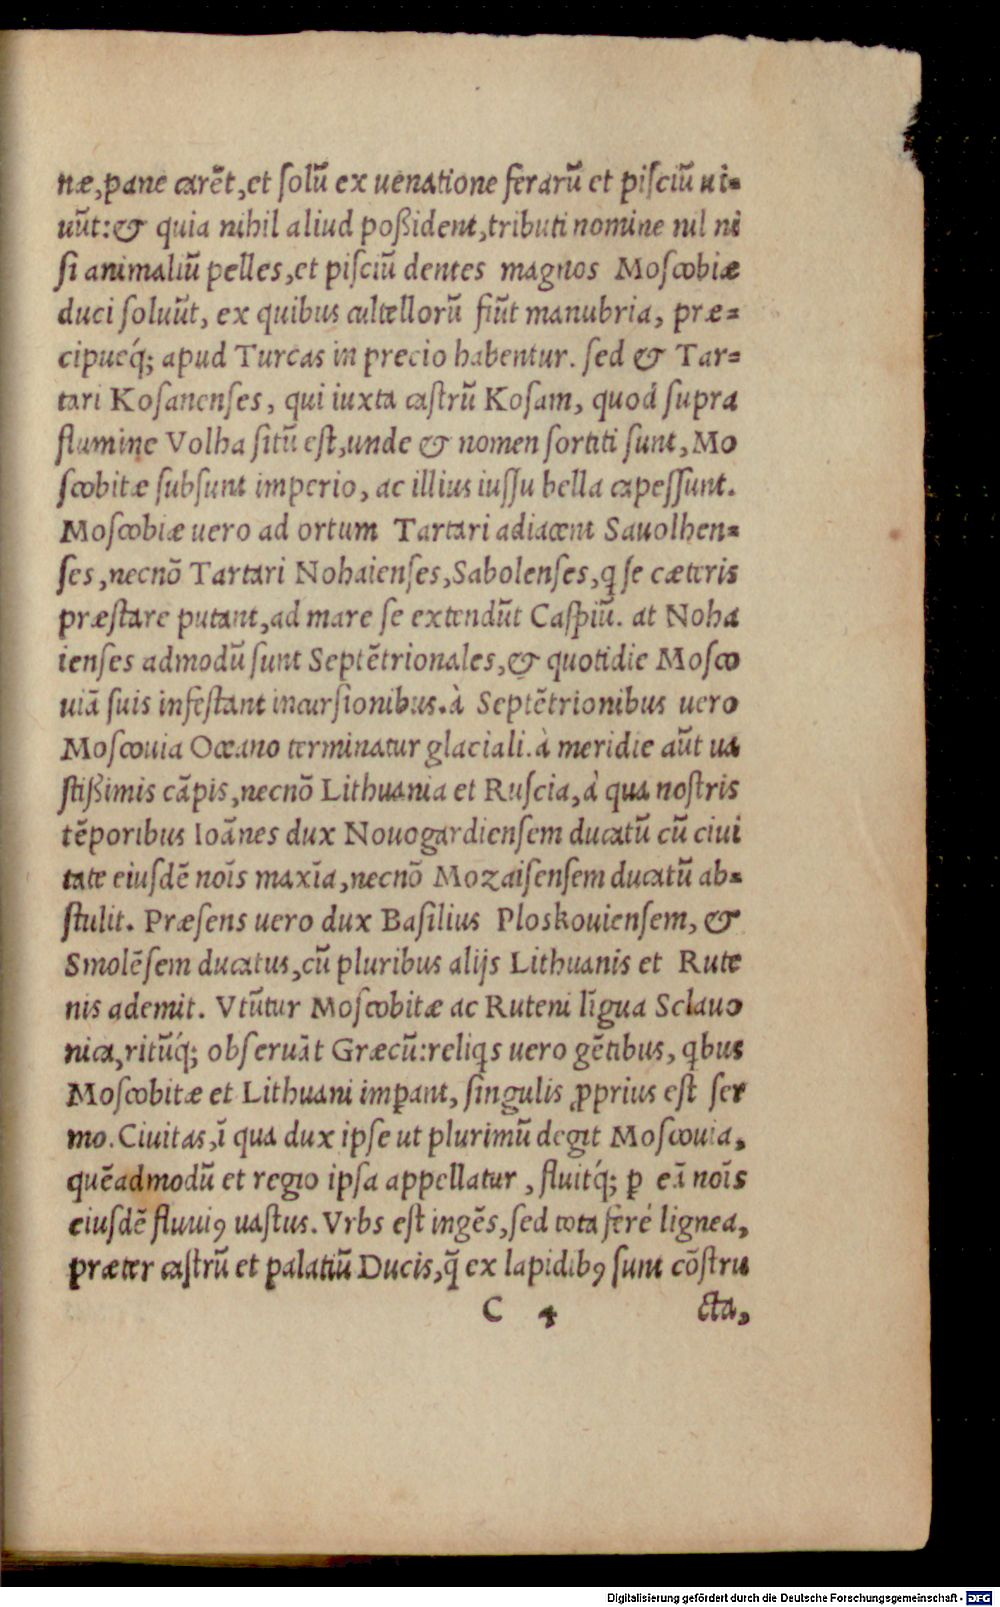 næ, pane carēt, et ſolū ex uenatione ferarū et piſciū ui-
uūt: & quia nihil aliud poßident, tributi nomine nil ni
ſi animaliū pelles, et piſciū dentes magnos Moſcobiæ
duci ſoluūt, ex quibus cultellorū fiūt manubria, præ-
cipueq́; apud Turcas in precio habentur. ſed & Tar-
tari Koſanenſes, qui iuxta caſtrū Koſam, quod ſupra
flumine Volha ſitū eſt, unde & nomen ſortiti ſunt, Mo
ſcobitæ ſubſunt imperio, ac illius iuſſu bella capeſſunt.
Moſcobiæ uero ad ortum Tartari adiacent Sauolhen-
ſes, necnō Tartari Nohaienſes, Sabolenſes, q̨ ſé cæteris
præſtare putant, ad mare ſe extendūt Caſpiū. at Noha
ienſes admodū ſunt Septētrionales, & quotidie Moſco
uiā ſuis infeſtant incurſionibus. à Septētrionibus uero
Moſcouia Oceano terminatur glaciali. à meridie aūt ua
ſtißimis cāpis, necnō Lithuania et Ruſcia, à qua noſtris
tēporibus Ioānes dux Nouogardienſem ducatū cū ciui
tate eiuſdē noīs maxīa, necnō Mozaiſenſem ducatū ab-
ſtulit. Præſens uero dux Baſilius Ploskouienſem, &
Smolēſem ducatus, cū pluribus alijs Lithuanis et Rute
nis ademit. Vtūtur Moſcobitæ ac Ruteni līgua Sclauo
nica, ritūq́; obſeruāt Græcū: reliq̨s uero gētibus, q̨bus
Moſcobitæ et Lithuani imꝑant, ſingulis ꝓprius eſt ſer
mo. Ciuitas, ī qua dux ipſe ut plurimū degit Moſcouia,
quēadmodū et regio ipſa appellatur, fluitq́; ꝑ eā noīs
eiuſdē fluuiꝰ uaſtus. Vrbs eſt ingēs, ſed tota feré lignea,
præter caſtrū et palatiū Ducis, q̄ ex lapidibꝰ ſunt cōſtru
C 4 cta,
Digitalisierung gefördert durch die Deutsche Forschungsgemeinschaft - DFG